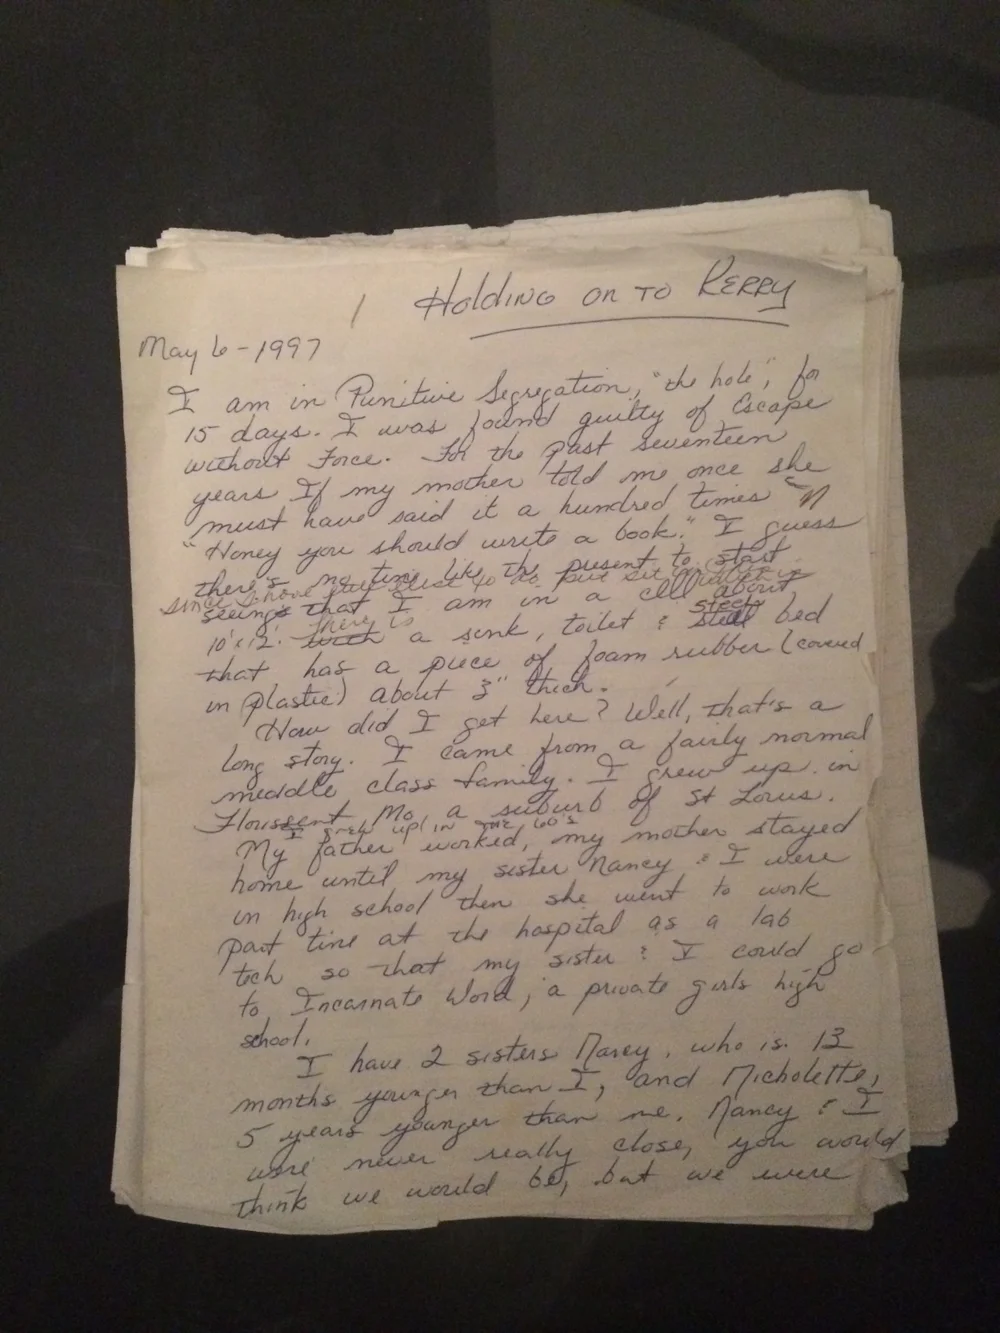 1 Holding on to Kerry
May 6-1997
I am in Punitive Segregation, "the hole", for
15 days. I was found guilty of Escape
without Force. For the past seventeen
years If my mother told me once she
must have said it a hundred times
"Honey you should write a book." I guess
there's no time like the present to start
since I have
seeing that I am in a cell about
10'x12'. There is a sink, toilet & steel bed
that has a piece of foam rubber (covered
in plastic) about 3" thick.
How did I get here? Well, that's a
long story. I came from a fairly normal
meddle class family. I grew up in
Florissent Mo, a suburb of St Lorus.
I grew up in the 60's
My father worked, my mother stayed
home until my sister Nancy & I were
in high school then she went to work
part time at the hospital as a lab
tech so that my sister & I could go
to Incarnate Word, a private girls high
school.
I have 2 sisters Nancy, who is 13
months younger than I, and Micholette,
5 years younger than me. Nancy & I
were never really close, you would
think we would be, but we were